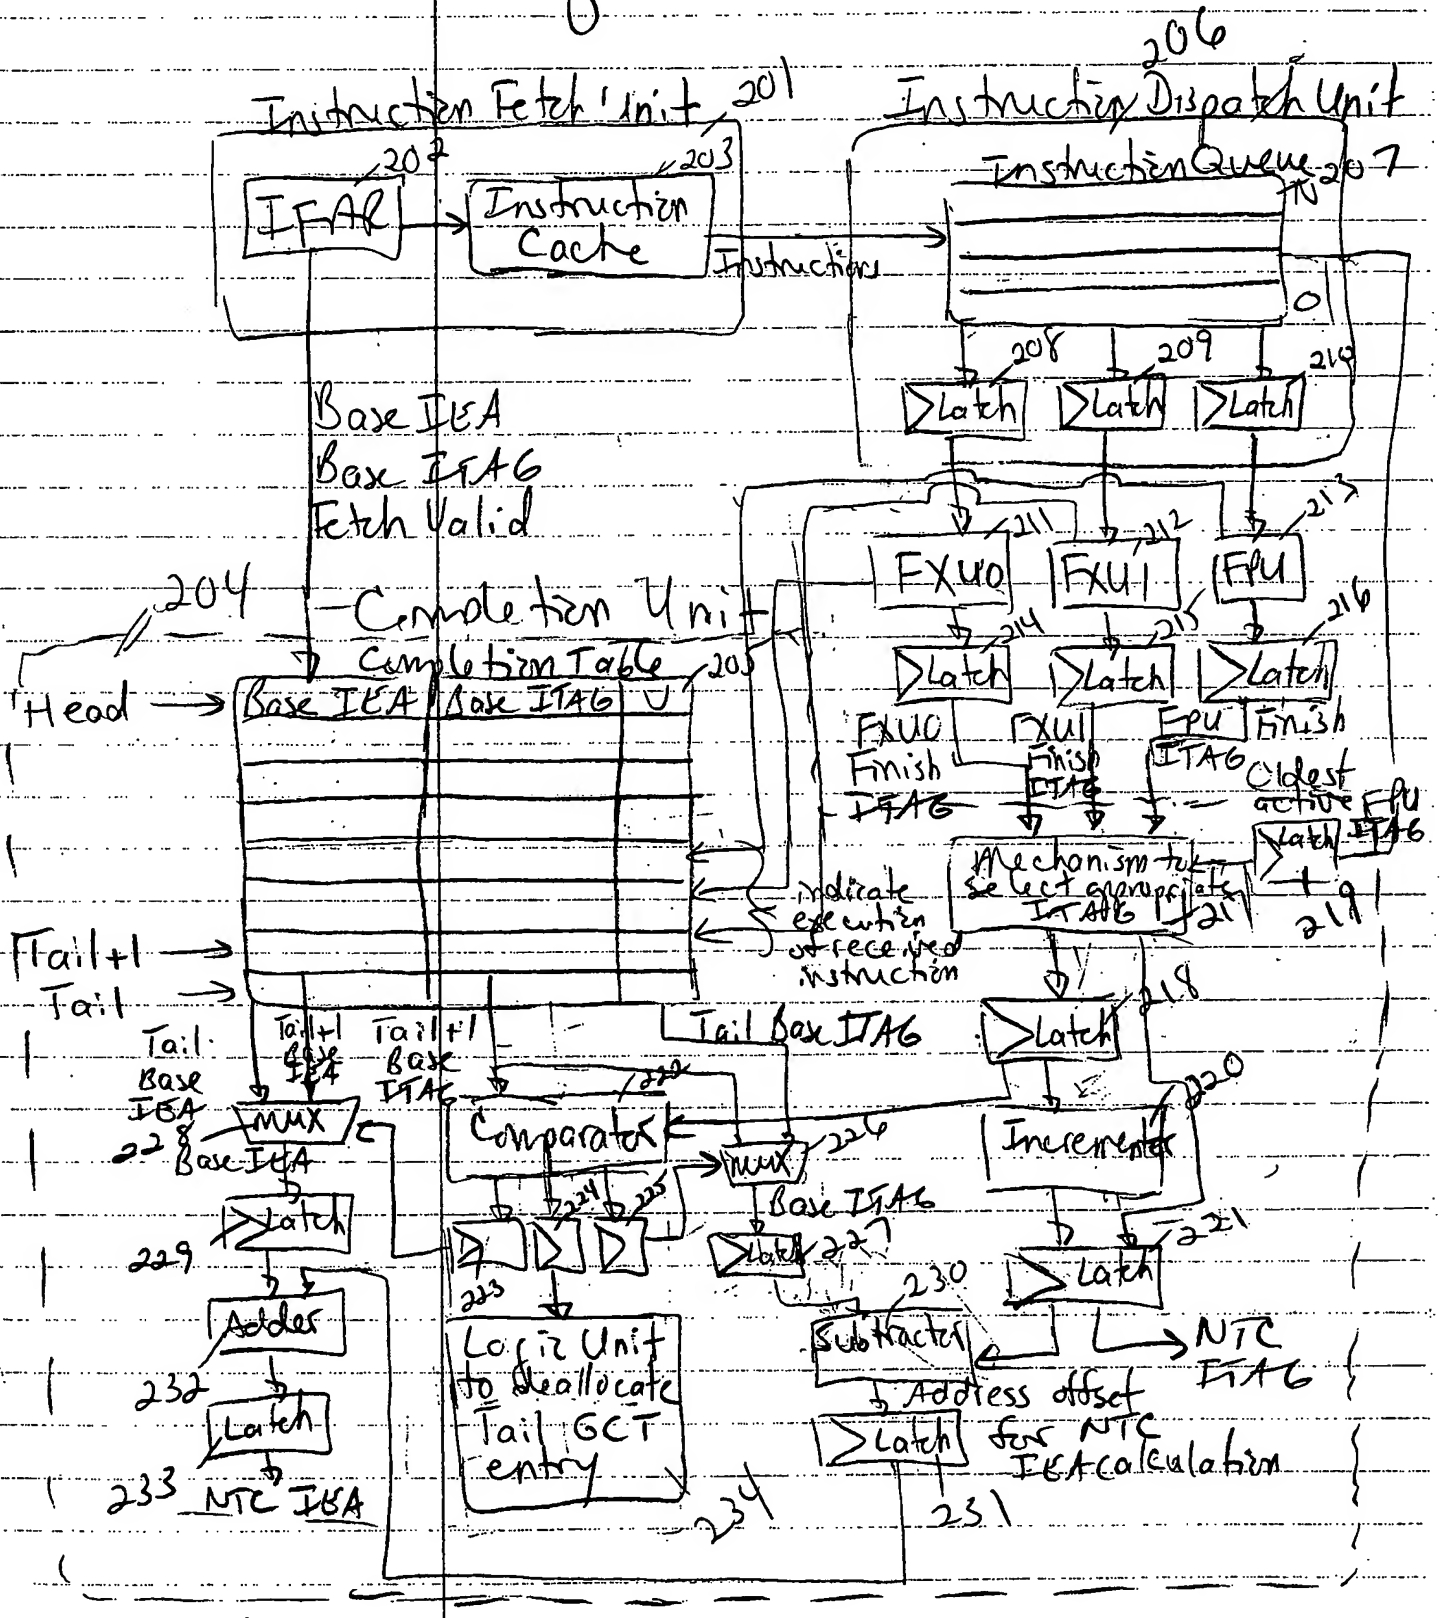 206
Instruction Fetch Unit 201
Instruction Dispatch Unit
202
203
Instruction Queue 207
IFAR
Instruction
Cache
N
Instructions
0
208
209
210
Latch
Latch
Latch
Base IEA
Base ITAG
Fetch Valid
211
212
213
FXU0
FXU1
FPU
204
Completion Unit
214
215
216
Completion Table
205
Latch
Latch
Latch
Head
Base IEA
Base ITAG
V
FXU0
Finish
ITAG
FXU1
Finish
ITAG
FPU
ITAG
Finish
Oldest
active FPU
ITAG
Latch
219
Mechanism to
select appropriate
ITAG
217
indicate
execution
of received
instruction
Tail+1
Tail
218
Latch
Tail
Base
IEA
Tail+1
Base
IEA
Tail+1
Base
ITAG
Tail Base ITAG
222
220
mux
228
Comparator
mux
226
Incrementer
Base IEA
Base ITAG
Latch
229
223
224
225
Latch
227
221
Latch
230
Adder
232
Logic Unit
to deallocate
Tail GCT
entry
234
Subtractor
NTC
ITAG
Address offset
for NTC
IEA calculation
Latch
233
Latch
231
NTC IEA